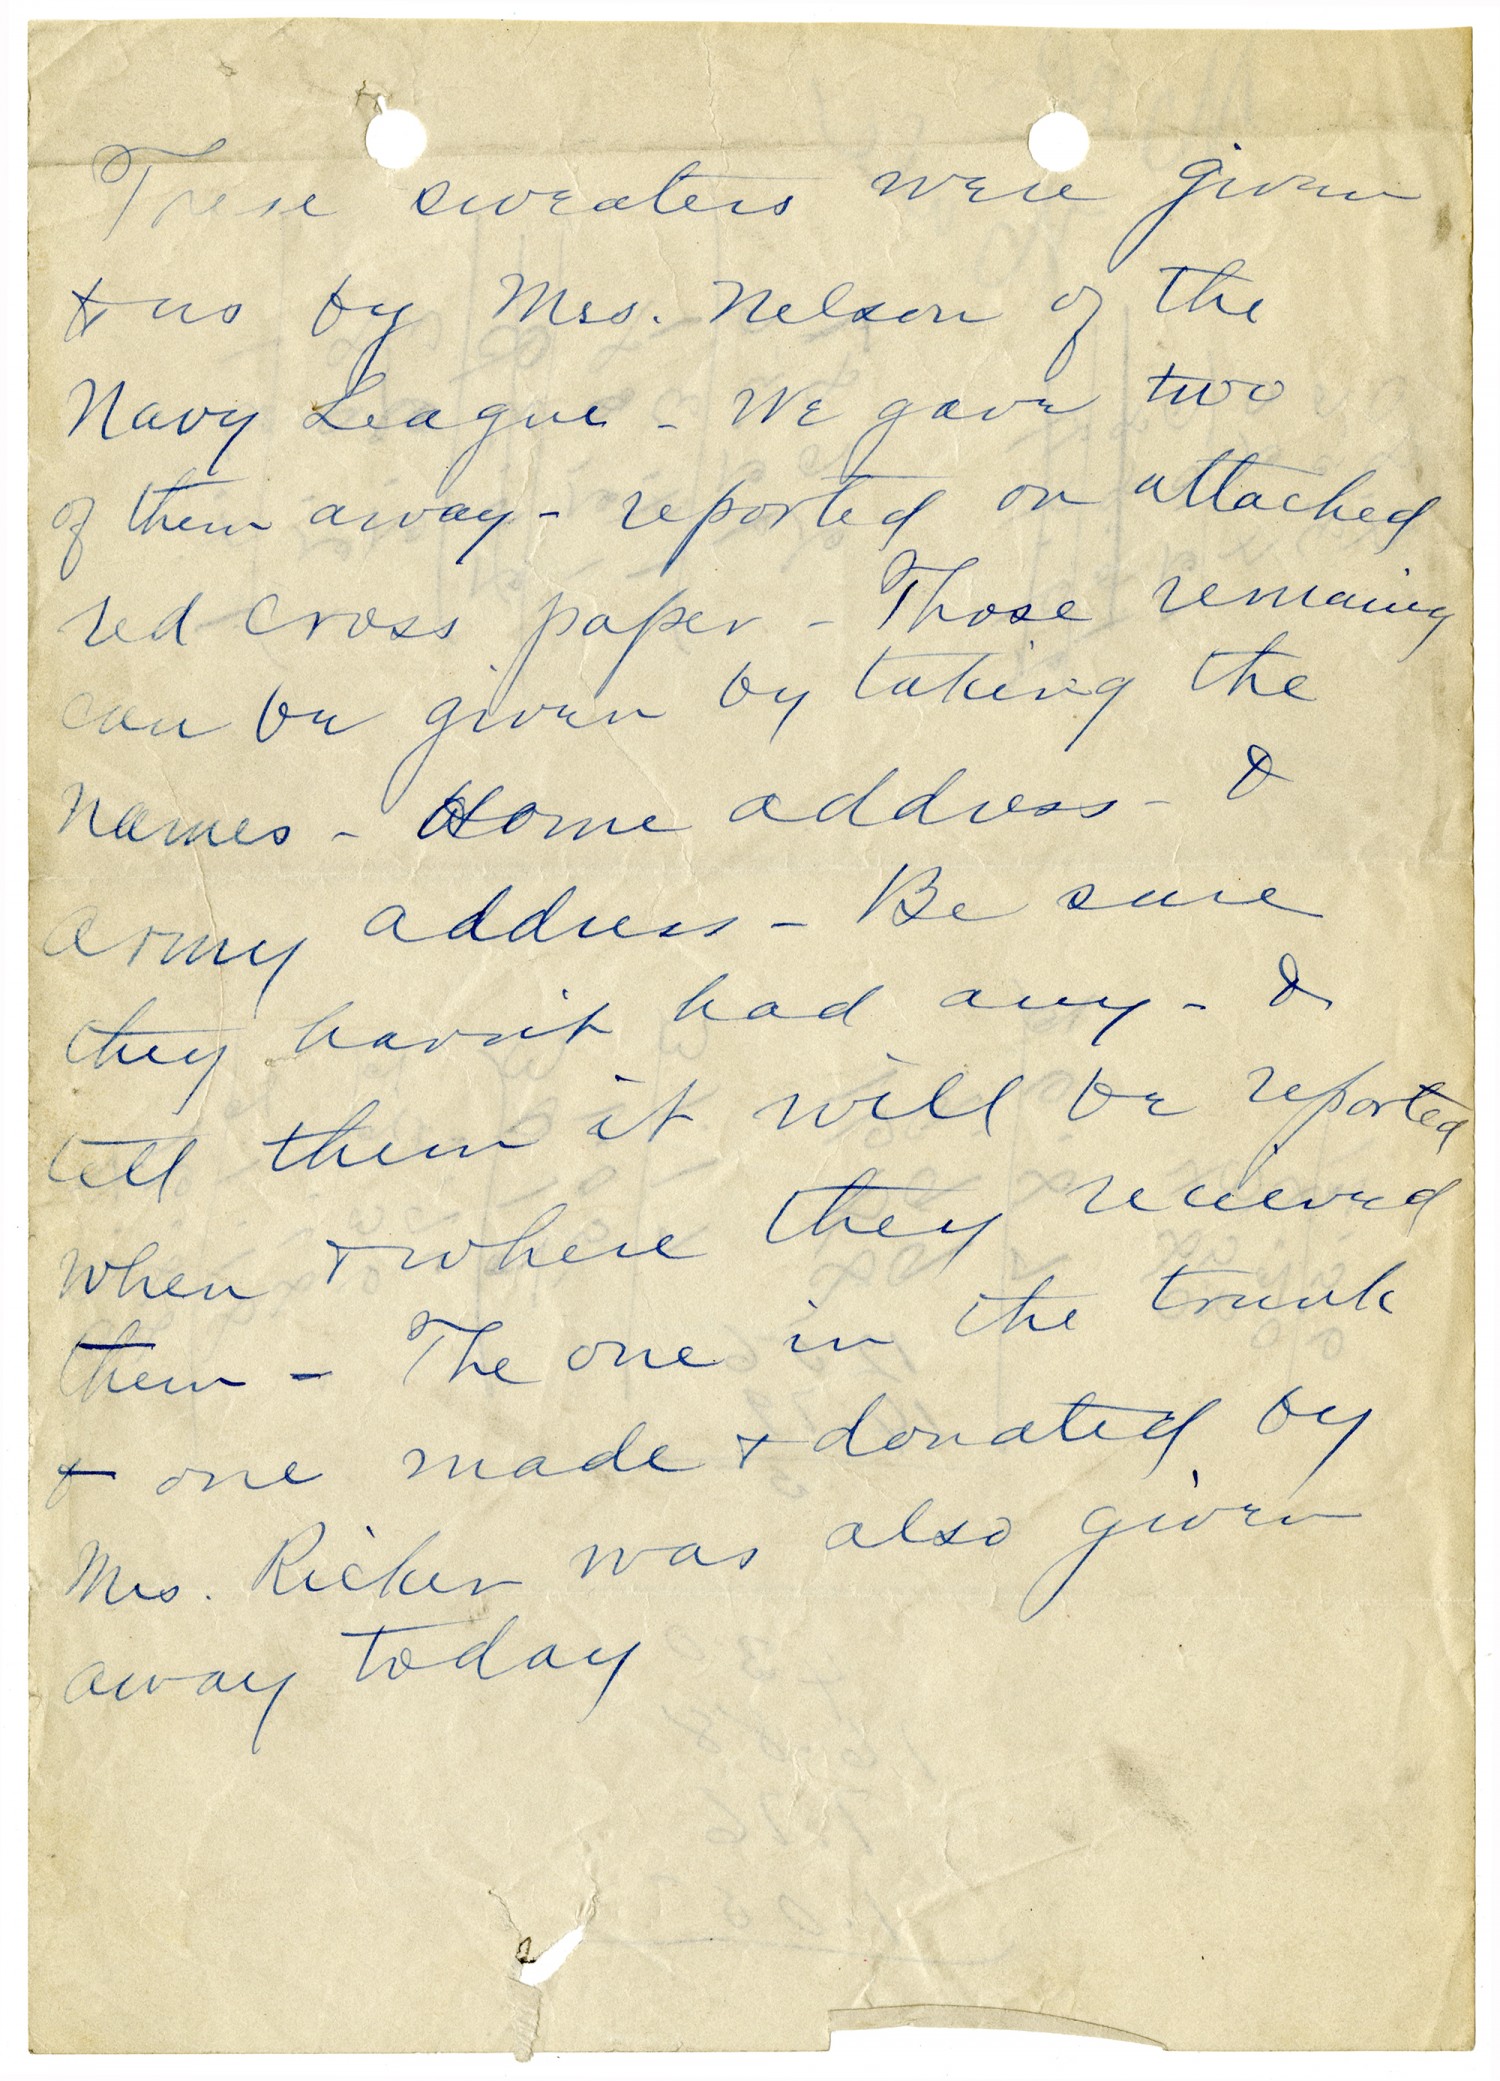 These sweaters were given
to us by Mrs. Nelson of the
Navy League - We gave two
of them away - reported on attached
red cross paper - Those remaing
can be given by taking the
names - Home address - &
army address - Be sure
they havn't had any - &
tell them it will be reported
when & where they recieved
them - The one in the trunk
& one made & donated by
Mrs. Ricker was also given
away today